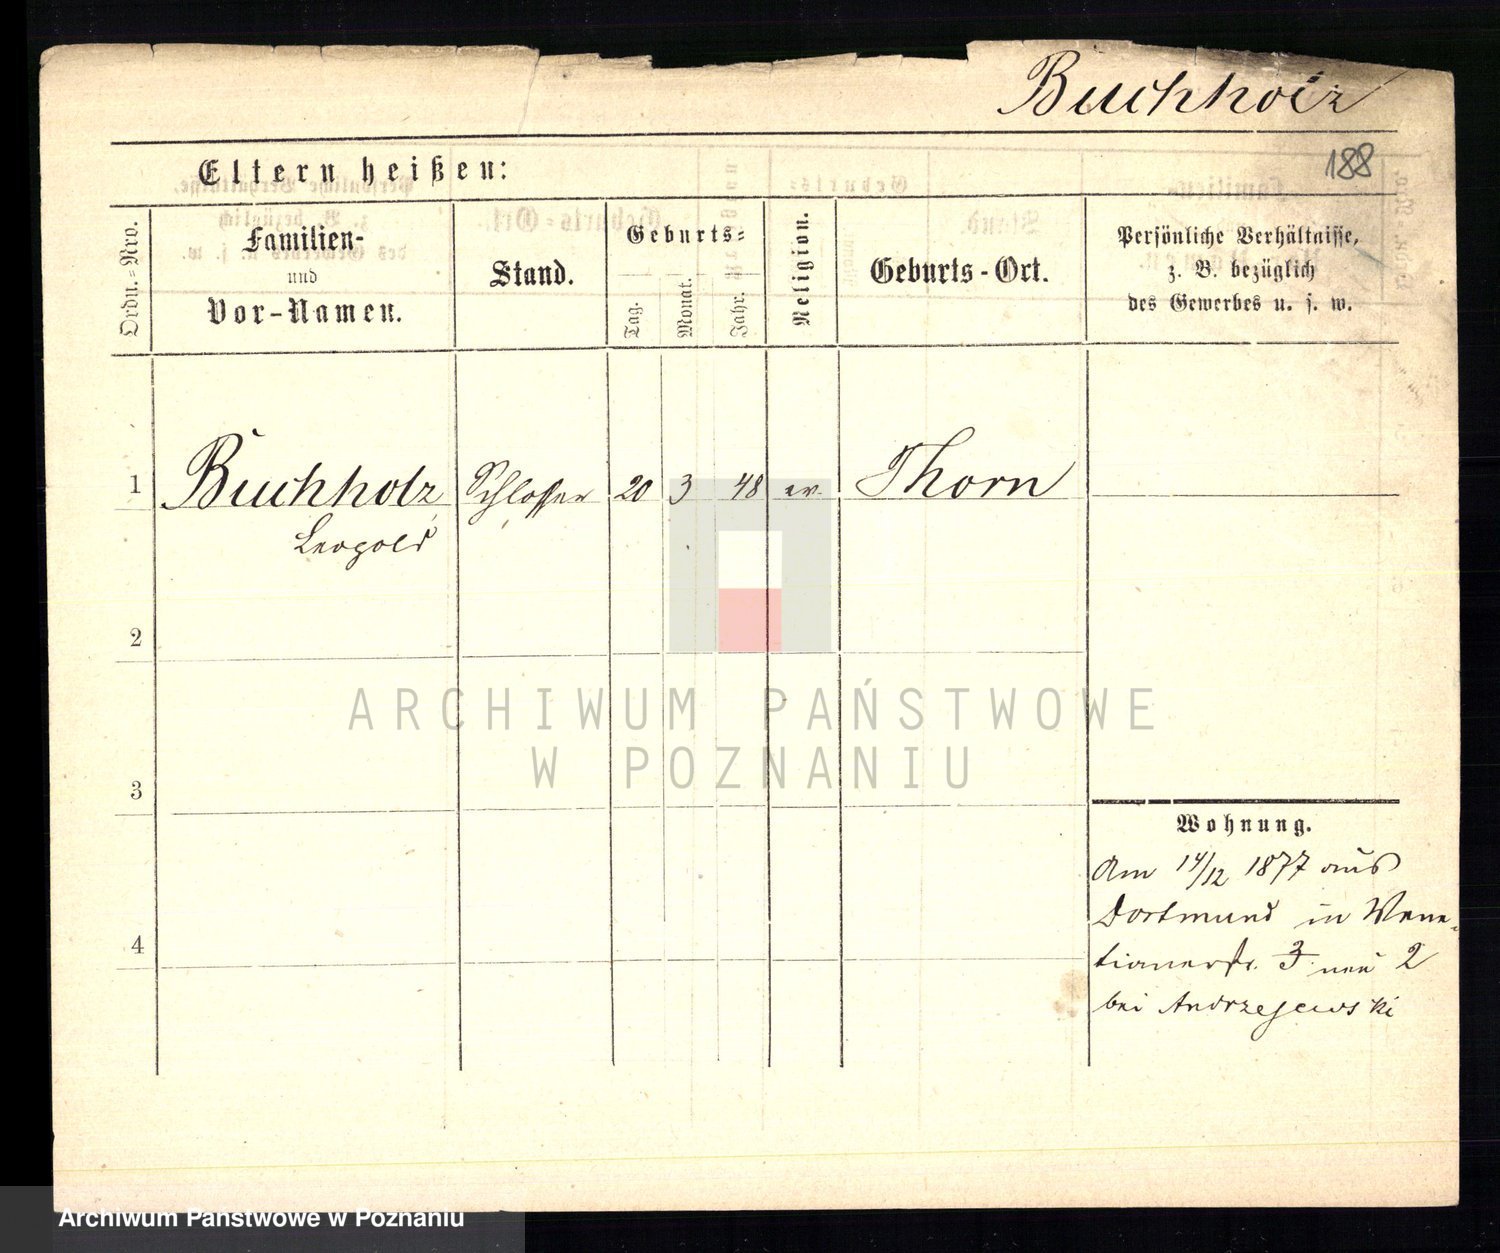 Buchholz
188
Eltern heißen:
Ordn.=Nro.
Familien-
und
Vor-Namen.
Stand.
Geburts=
Tag.
Monat.
Jahr.
Religion.
Geburts-Ort.
Persönliche Verhältnisse,
z. B. bezüglich
des Gewerbes u. s. w.
1 Buchholz Schlosser 20 3 48 ev. Thorn
Leopold
2
3
4
ARCHIWUM PAŃSTWOWE
W POZNANIU
Wohnung.
Am 14/12 1877 aus
Dortmund in Vene-
tianerstr. 3 neu 2
bei Andrzejewski
Archiwum Państwowe w Poznaniu